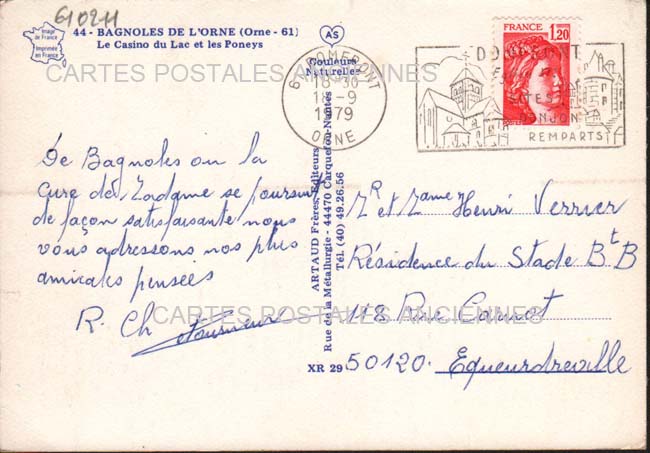 610211
Image de France
Imprimée en France
44 - BAGNOLES DE L'ORNE (Orne - 61)
Le Casino du Lac et les Poneys
AS
Couleurs Naturelles
CARTES POSTALES ANCIENNES
61 DOMFRONT
18-30
1979
ORNE
FRANCE
1,20
DOMFRONT
DONJON
REMPARTS
De Bagnoles ou la
Cure de Madame se poursuit
de façon satisfaisante nous
vous adressons nos plus
amicales pensées
R. Ch
ARTAUD Frères, Editeurs
Rue de la Métallurgie - 44470 Carquefou-Nantes
Tél. (40) 49.26.56
XR 29
Mr et Mme Henri Verrier
Résidence du Stade Bt B
CARTES POSTALES ANCIENNES
118 Rue Carnot
50120. Equeurdreville